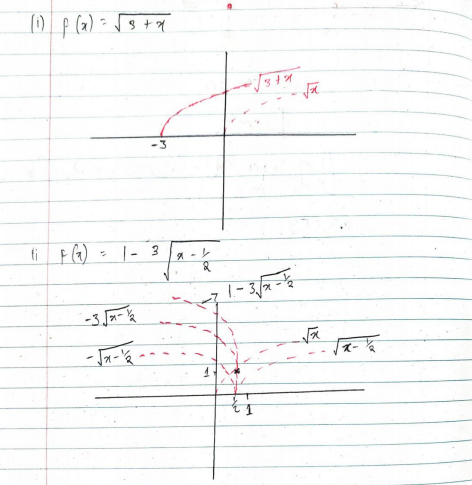 (i) f(x) = √3 + x
√3 + x
√x
-3
ii f(x) = 1 - 3√x - 1/2
1 - 3√x - 1/2
-3√x - 1/2
√x
-√x - 1/2
√x - 1/2
1
1/2 1